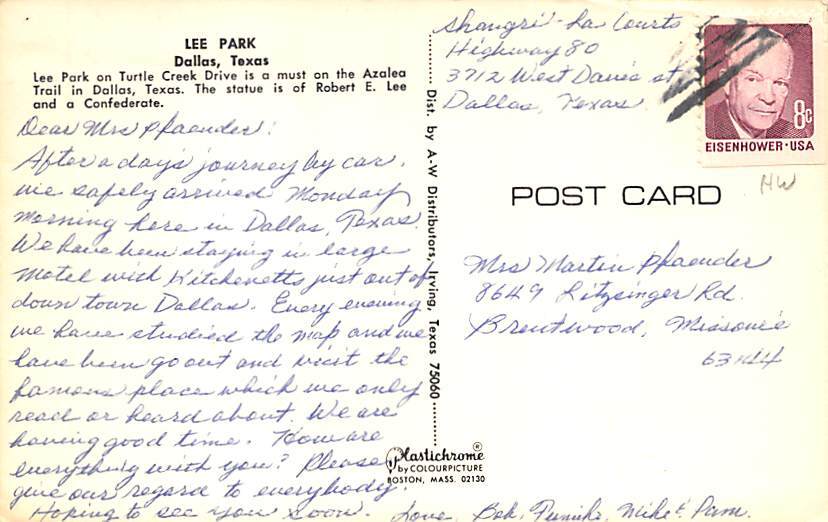 LEE PARK
Dallas, Texas
Lee Park on Turtle Creek Drive is a must on the Azalea
Trail in Dallas, Texas. The statue is of Robert E. Lee
and a Confederate.
Dear Mrs Pfaender:
After a day's journey by car,
we safely arrived Monday
morning here in Dallas, Texas.
We have been staying in large
motel with Kitchenetts just out of
down town Dallas. Every evening
we have studied the map and we
have been go out and visit the
famous place which we only
read or heard about. We are
having good time. How are
everything with you? Please
give our regard to everybody.
Hoping to see you soon.
Love, Bob, Fumiko, Mike & Pam.
Dist. by A-W Distributors, Irving, Texas 75060
Shangri-La Courts
Highway 80
3712 West Davis st
Dallas, Texas
8c
EISENHOWER·USA
HW
POST CARD
Mrs Martin Pfaender
8649 Litzsinger Rd.
Brentwood, Missourie
63144
Plastichrome®
by COLOURPICTURE
BOSTON, MASS. 02130